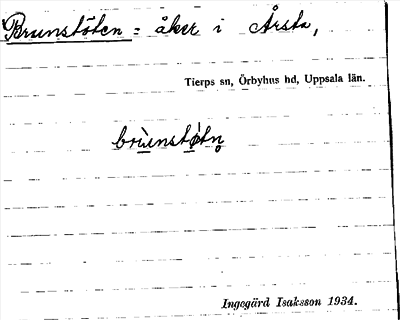 Brunstöten = åker i Årsta,
Tierps sn, Örbyhus hd, Uppsala län.
brùnstǿtn̥
Ingegärd Isaksson 1934.